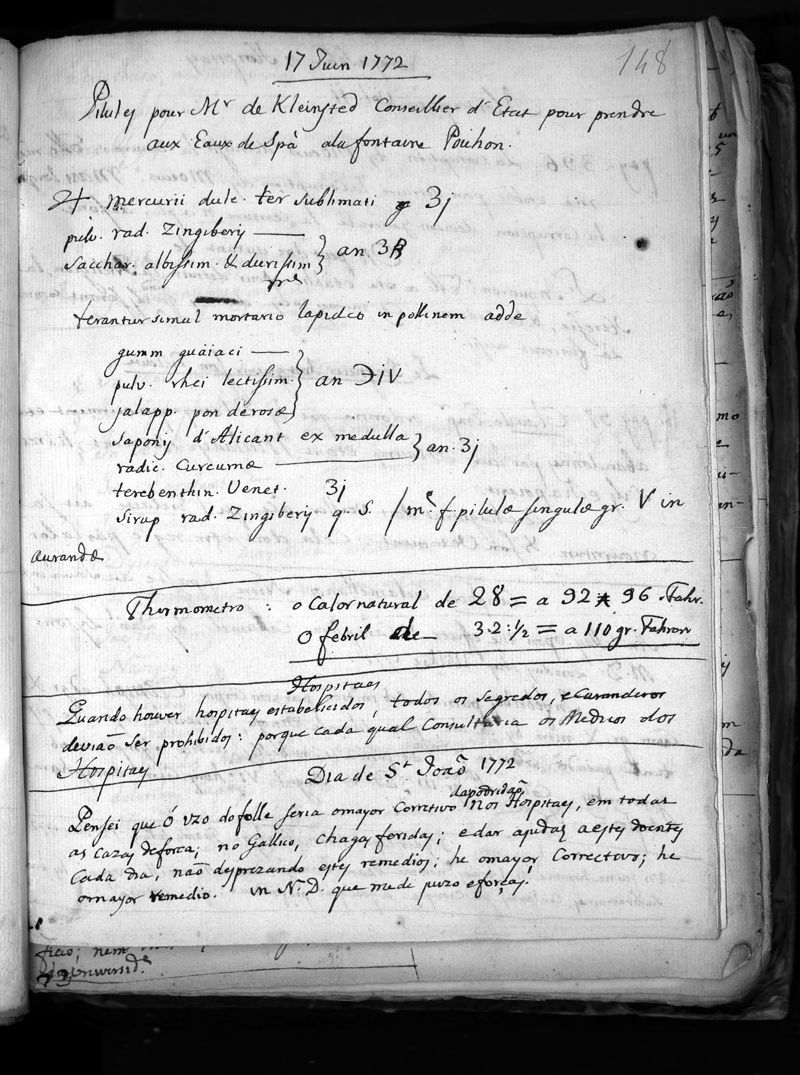 148
17 Juin 1772
Pilules pour Mr de Kleinsted Conseillier d'Etat pour prendre
aux Eaux de Spà dela fontaine Pouhon.
♃ mercurii dulc. ter sublimati ʒj
pulv. rad. Zingiberij
sacchar. albissim. & durissim } an ʒß
terantur simul mortario lapideo in pollinem adde
gumm guäiaci
pulv. rhei lectissim. } an ℈iV
jalapp. ponderosæ
saponij d'Alicant ex medulla
radic. Curcumæ } an. ʒj
terebenthin. Venet. ʒj
sirup rad. Zingiberij q. S. / m. f. pilulæ singulæ gr. V in
aurandæ
Thermometro : o Calor natural de 28 = a 92 96. Fahr.
O febril de 32:½ = a 110 gr. Fahren
Hospitaes
Quando houver hospitaes estabelicidos, todos os segredos, e Curanderos
devião ser prohibidos: porque cada qual Consultaria os Medicos dos
Hospitaes
Dia de St João 1772
da podridão
Pensei que ó uzo do folle seria o mayor Corretivo nos Hospitaes, em todas
as cazas deforca; no Gallico, chagas feridas; e dar ajudas a estes doentes
cada dia, não desprezando estes remedios; he o mayor Correctivo; he
o mayor remedio. in N. D. que me de juizo e forças.
ficio; nem